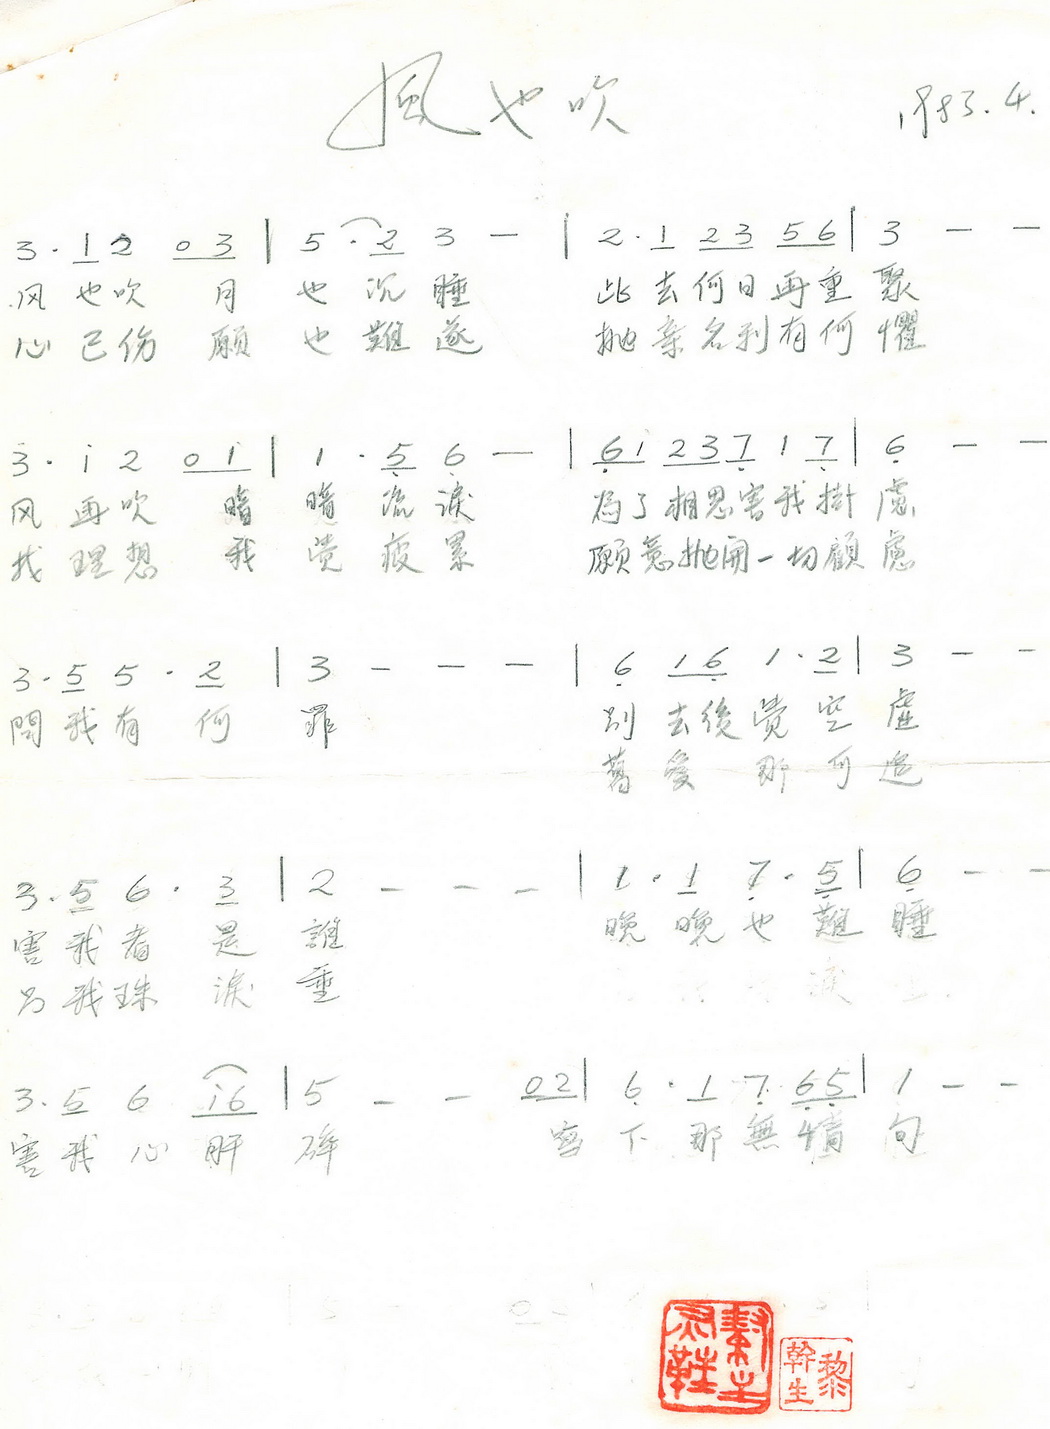 風也吹
1983.4.
3 · 1 2 0 3 | 5 · 2 3 — | 2 · 1 2 3 5 6 | 3 — —
风也吹 月 也沉睡 此去何日再重聚
心已伤 願 也難遂 抛棄名利有何懼
3 · i 2 0 i | 1 · 5 6 — | 6 1 2 3 7 1 7 | 6 — —
风再吹 暗 暗流淚 為了相思害我掛慮
我理想 我 覺疲累 願意抛開一切顧慮
3 · 5 5 · 2 | 3 — — — | 6 1 6 1 · 2 | 3 — —
問我有何 罪 別去後覺空虛
舊愛那何追
3 · 5 6 · 3 | 2 — — — | 1 · 1 7 · 5 | 6 — —
害我者是 誰 晚晚也難睡
另我珠淚 垂 淚
3 · 5 6 i 6 | 5 — — 0 2 | 6 · 1 7 · 6 5 | 1 — —
害我心肝 碎 寫下那無情句
黎幹生